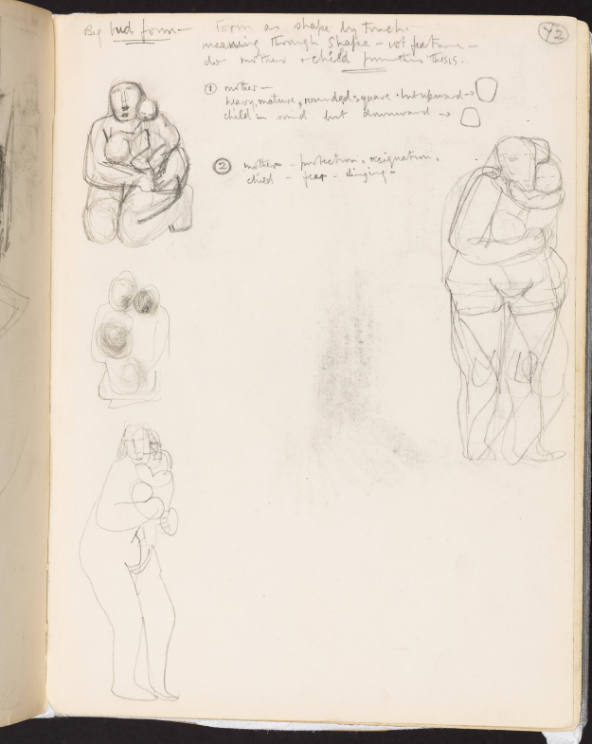 Big bud form –
Form as shape by touch.
meaning through shape – not feature –
do mother + child thesis.
① mother –
heavy, mature, rounded square but upward →
child – round but downward →
② mother – protection, resignation.
child – fear – clinging –
42